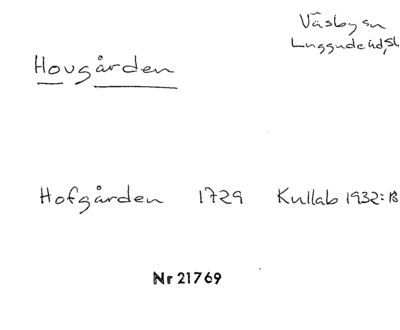 Väsby sn
Luggude hd, Sk
Hovgården
Hofgården 1729 Kullab 1932: B
Nr 21769